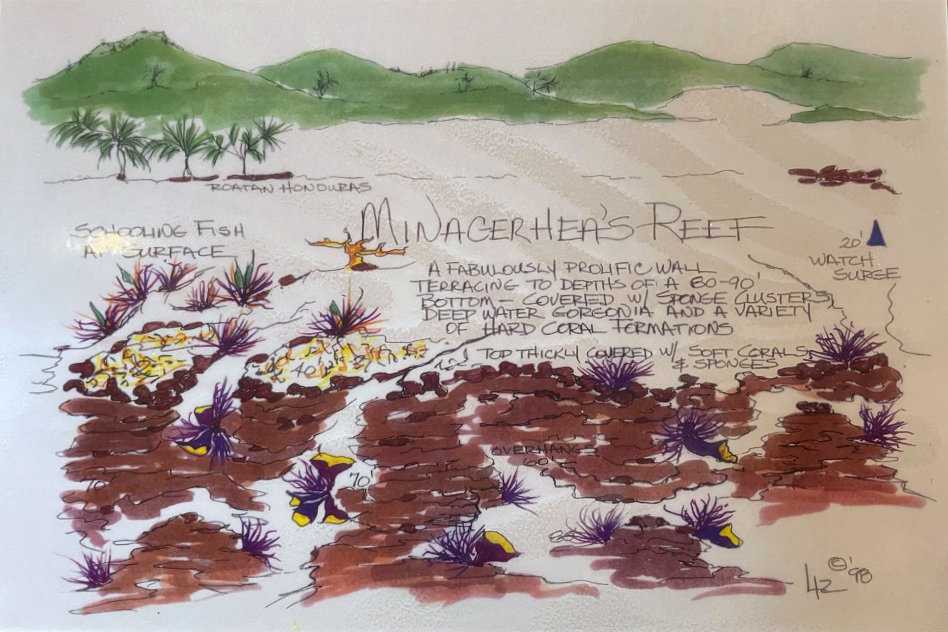 ROATAN HONDURAS
MINAGERHEA'S REEF
SCHOOLING FISH
AT SURFACE
20'
WATCH
SURGE
A FABULOUSLY PROLIFIC WALL
TERRACING TO DEPTHS OF A 80-90'
BOTTOM - COVERED W/ SPONGE CLUSTERS,
DEEP WATER GORGONIA AND A VARIETY
OF HARD CORAL FORMATIONS
TOP THICKLY COVERED W/ SOFT CORALS
& SPONGES
40'
OVERHANG
60'
70'
70'
80'
©'98